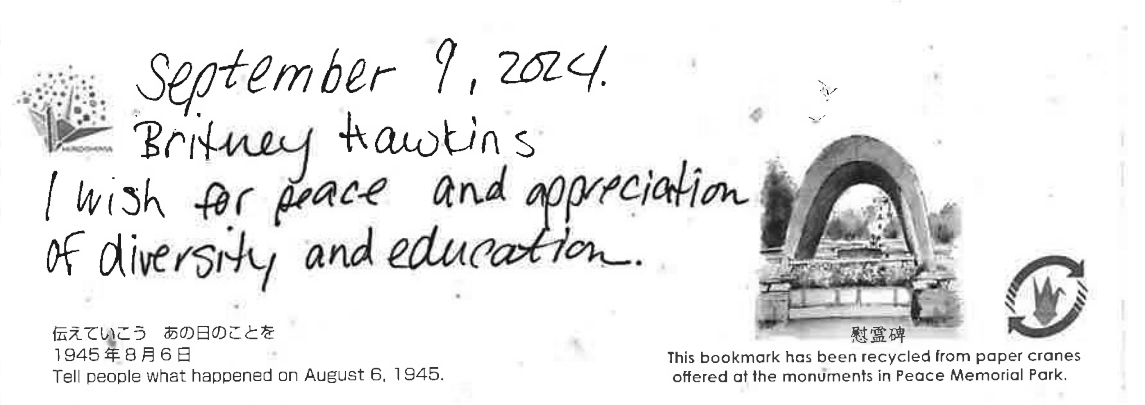 September 9, 2024.
Britney Hawkins
I wish for peace and appreciation
of diversity and education.
HIROSHIMA
伝えていこう あの日のことを
1945年8月6日
Tell people what happened on August 6, 1945.
慰霊碑
This bookmark has been recycled from paper cranes
offered at the monuments in Peace Memorial Park.